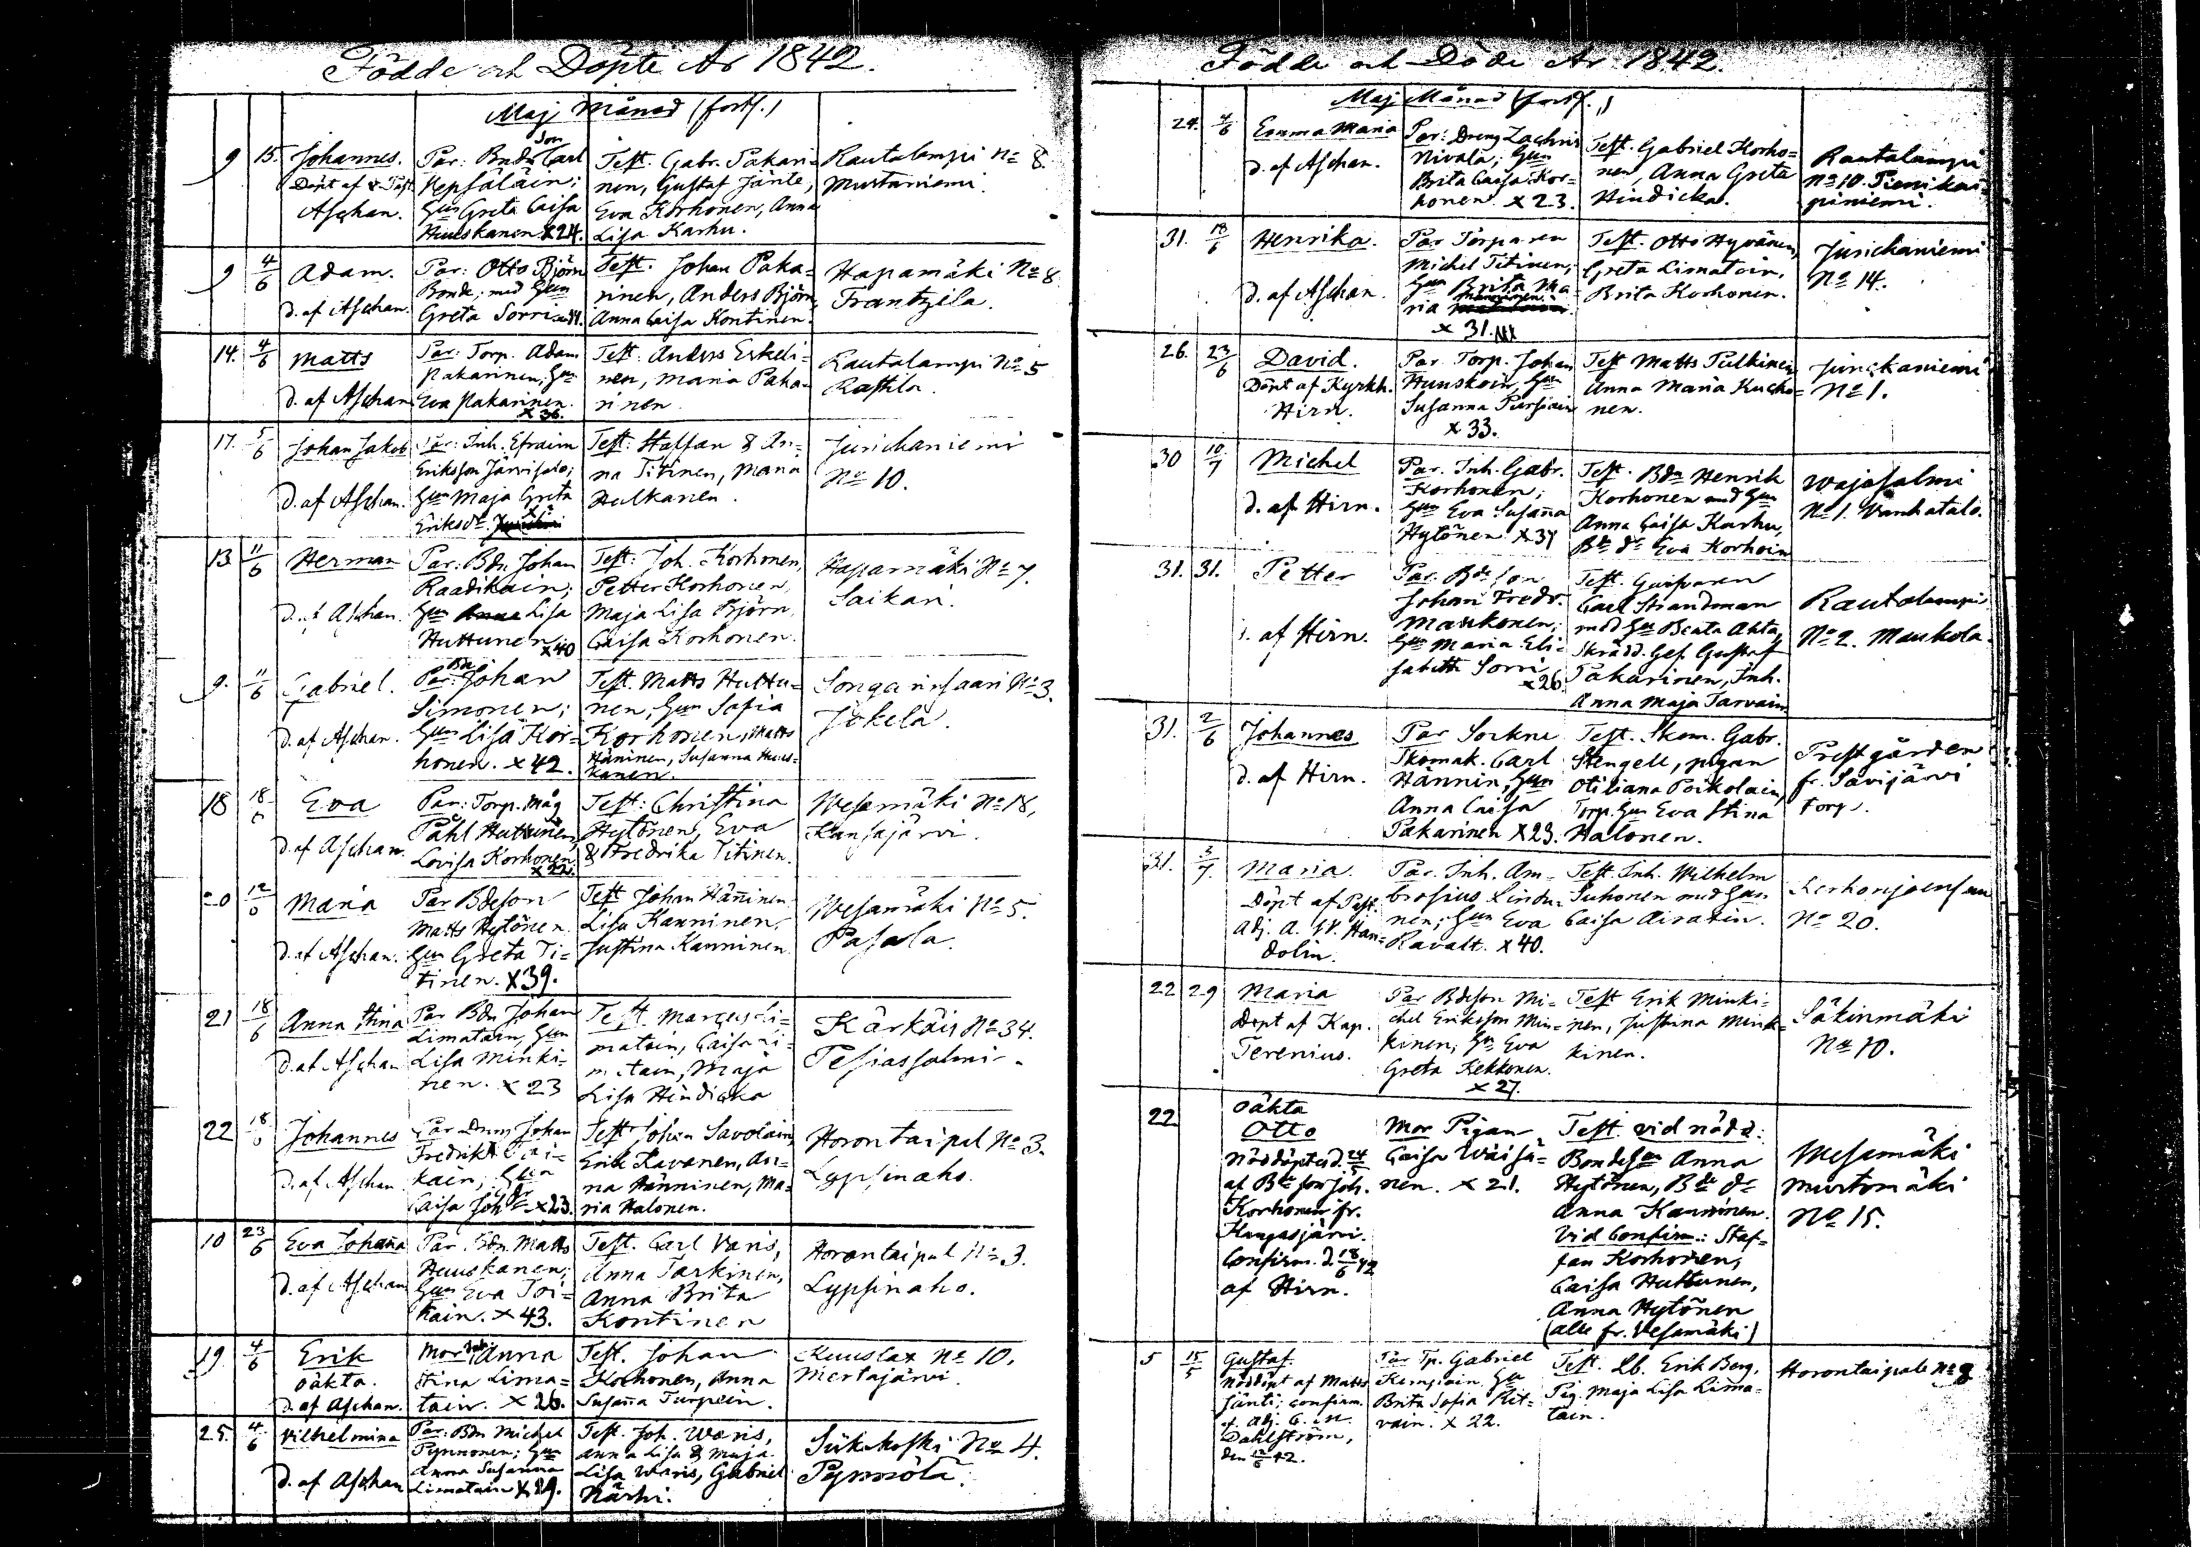 Födde och Döpte År 1842.
Maj Månad (forts.)
9 15. Johannes.
Döpt af
Aschan.
Par: Bnd Son Carl
Hepsäläin;
Hun Greta Caisa
Huuskanen x 24.
Test. Gabr. Pakari-
nen, Gustaf Jänte,
Eva Korhonen, Anna
Lisa Karhu.
Rautalampi No 8
Murtoniemi.
9 4/6 Adam.
D. af Aschan.
Par: Otto Björn
Bonde, med Hun
Greta Sorri
Test. Johan Paka-
rinen, Anders Björn,
Anna Caisa Kontinen.
Hapamäki No 8
Frantzila.
14. 4/6 Matts
D. af Aschan
Par: Torp. Adam
Pakarinen, Hun
Eva Pakarinen.
x 36.
Test: Anders Eskeli-
nen, Maria Paka-
rinen.
Rautalampi No 5
Rastila.
17. 5/6 Johan Jakob
D. af Aschan.
Par: Inh. Efraim
Eriksson Järvisalo;
Hun Maja Greta
Eriksdr.
Test: Staffan & An-
na Titinen, Maria
Hulkanen.
Junichaniemi
No 10.
13 11/6 Herman
D. af Aschan.
Par: Bdn Johan
Raadikain;
Hun Anna Lisa
Huttunen x 40
Test: Joh. Korhonen,
Petter Korhonen,
Maja Lisa Björn,
Caisa Korhonen.
Hapamäki No 7.
Saikari.
9. 11/6 Gabriel.
D. af Aschan.
Par: Bdn Johan
Simonen;
Hun Lisa Kor-
honen. x 42.
Test. Matts Huttu-
nen, Hun Sofia
Korhonen, Matts
Häninen, Susanna Huus-
kanen.
Songarinsaari No 3.
Jokela.
18 18/6 Eva
D. af Aschan.
Par: Torp. Måg
Påhl Huttunen,
Lovisa Korhonen.
x 22.
Test: Christina
Hytönen, Eva
& Fredrika Titinen.
Wesamäki No 18,
Kansajärvi.
20 12/6 Maria
D. af Aschan.
Par Bdeson
Matts Hytönen
Hun Greta Ti-
tinen. x 39.
Test Johan Häninen
Lisa Kanninen,
Justina Kanninen
Wesamäki No 5.
Pasala.
21 18/6 Anna Stina
D. af Aschan
Par Bdn Johan
Limatain, Hun
Lisa Minki-
nen. x 23
Test. Marcus Li-
matain, Caisa Li-
matain, Maja
Lisa Hindicka
Kärkäis No 34.
Pesiassalmi.
22 18/6 Johannes
D. af Aschan
Par Dräng Johan
Fredrik
kain; Hun
Caisa Joh dr x 23.
Test Johan Savolain,
Erik Kavanen, An-
na Hänninen, Ma-
ria Halonen.
Horontaipal No 3.
Lypsinaho.
10 23/6 Eva Johana
D. af Aschan
Par Bdn Matts
Huuskanen;
Hun Eva Toi-
kain. x 43.
Test. Carl Varis,
Anna Tarkinen,
Anna Brita
Kontinen
Horontaipal No 3.
Lypsinaho.
19 4/6 Erik
oäkta.
D. af Aschan.
Mor Anna
Stina Lima-
tain. x 26.
Test. Johan
Korhonen, Anna
Susana Turpein.
Kuuslax No 10,
Mertajärvi.
25. 4/6 Vilhelmina
D. af Aschan
Par: Bdn Michel
Pynnonen; Hun
Anna Susanna
Limatain x 29.
Test. Joh. Waris,
Anna Lisa & Maja
Lisa Waris, Gabriel
Närhi.
Sükakoski No 4.
Pynnölä.
Födde och Döde År 1842.
Maj Månad (forts.)
24. 4/6 Emma Maria
D. af Aschan.
Par: Dreng Zachris
Nivala; Hun
Brita Caisa Kor-
honen x 23.
Test. Gabriel Korho-
nen, Anna Greta
Hindicka.
Rautalampi
No 10.
31. 18/6 Henrika.
D. af Aschan.
Par Torparen
Michel Titinen;
Hun Brita Ma-
ria Manninen
x 31.
Test. Otto Hyvönen,
Greta Limatain,
Brita Korhonen.
Junichaniemi
No 14.
26. 23/6 David.
Döpt af Kyrkh.
Hirn.
Par. Torp. Johan
Huuskoin, Hun
Susanna Pursiain
x 33.
Test Matts Pulkinen
Anna Maria Kucko-
nen.
Junckaniemi
No 1.
30 10/7 Michel
D. af Hirn.
Par. Inh. Gabr.
Korhonen;
Hun Eva Susana
Hytönen x 37
Test. Bdn Henrik
Korhonen med Hun
Anna Caisa Karhu,
Bde dr Eva Korhoin
Wajasalmi
No 1. Vanhatalo.
31. 31. Petter
D. af Hirn.
Par. Bde son
Johan Fredr.
Maukonen;
Hun Maria Eli-
sabeth Sorri
x 26
Test. Garfvaren
Carl Strandman
med Hun Beata Ahta,
Skrädd. Ges. Gustaf
Pakarinen, Inh.
Anna Maja Tarvain
Rautalampi
No 2. Maukola.
31. 2/6 Johannes
D. af Hirn.
Par Sockne
Skomak. Carl
Hännin, Hun
Anna Caisa
Pakarinen x 23.
Test. Skom. Gabr.
Stengell, pigan
Otiliana Poikolain,
Torp. Hun Eva Stina
Halonen.
Prestgården
fr. Savijärvi
torp.
31. 3/7. Maria
Döpt af Past.
Adj. A. W. Han-
dolin.
Par. Inh. Am-
brosius Lindu-
nen; Hun Eva
Ravatt. x 40.
Test. Inh. Wilhelm
Suhonen med Hun
Caisa Airaxin.
Kerhonjoensuu
No 20.
22 29 Maria
Döpt af Kap.
Terenius.
Par Bdeson Mi-
chel Eriksson Min-
kinen; Hn Eva
Greta Kekkonen.
x 27.
Test Erik Minki-
nen, Justina Mink-
kinen.
Säkinmäki
No 10.
22 oäkta
Otto
Nöddöpt d. 24/5
af Bde son Joh.
Korhonen fr.
Hangasjärvi.
Confirm. d. 18/6 42
af Hirn.
Mor Pigan
Caisa Wäisä-
nen. x 21.
Test. vid nödd:
Bondehun Anna
Hytönen, Bde dr
Anna Kanninen.
Vid Confirm.: Staf-
fan Korhonen,
Caisa Huttunen,
Anna Hytönen
(alle fr. Vesamäki)
Wesamäki
Murtomäki
No 15.
5 15/5 Gustaf.
Nöddöpt af Matts
Jänti; confirm.
af Adj. C. W.
Dahlström,
den 12/6 42.
Par Tp. Gabriel
Kempain. Hu
Brita Sofia Rit-
vain. x 22.
Test. Lb. Erik Berg,
Pig. Maja Lisa Lima-
tain.
Horontaipale No 8